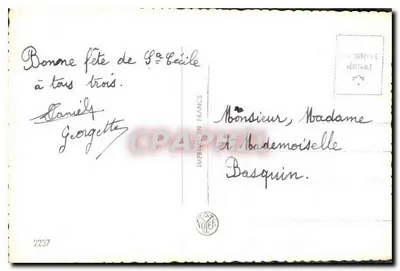 Bonne fête de Ste Cécile
à tous trois.
Daniel
Georgette
Monsieur, Madame
et Mademoiselle
Basquin.
IMPRIMÉ EN FRANCE
VÉRITABLE
2237